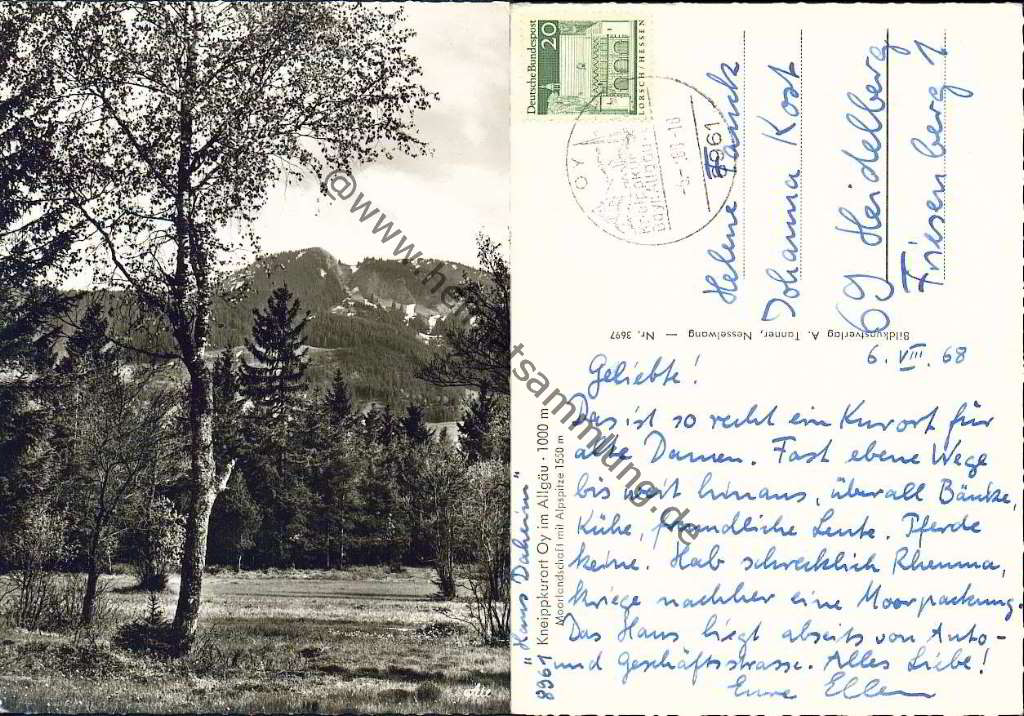 Deutsche Bundespost
20
LORSCH/HESSEN
OY
8961
-6.-8.68-18
Helene Tauck
Johanna Kost
69 Heidelberg
Friesenberg 1
Bildkunstverlag A. Tanner, Nesselwang — Nr. 3697
6. VIII. 68
Geliebte!
Das ist so recht ein Kurort für
alte Damen. Fast ebene Wege
bis weit hinaus, überall Bänke,
Kühe, freundliche Leute. Pferde
keine. Hab schrecklich Rheuma,
kriege nachher eine Moorpackung.
Das Haus liegt abseits von Auto-
und Geschäftsstrasse. Alles Liebe!
Eure Ellen
"Haus Daheim"
8961 Kneippkurort Oy im Allgäu · 1000 m
Moorlandschaft mit Alpspitze 1550 m